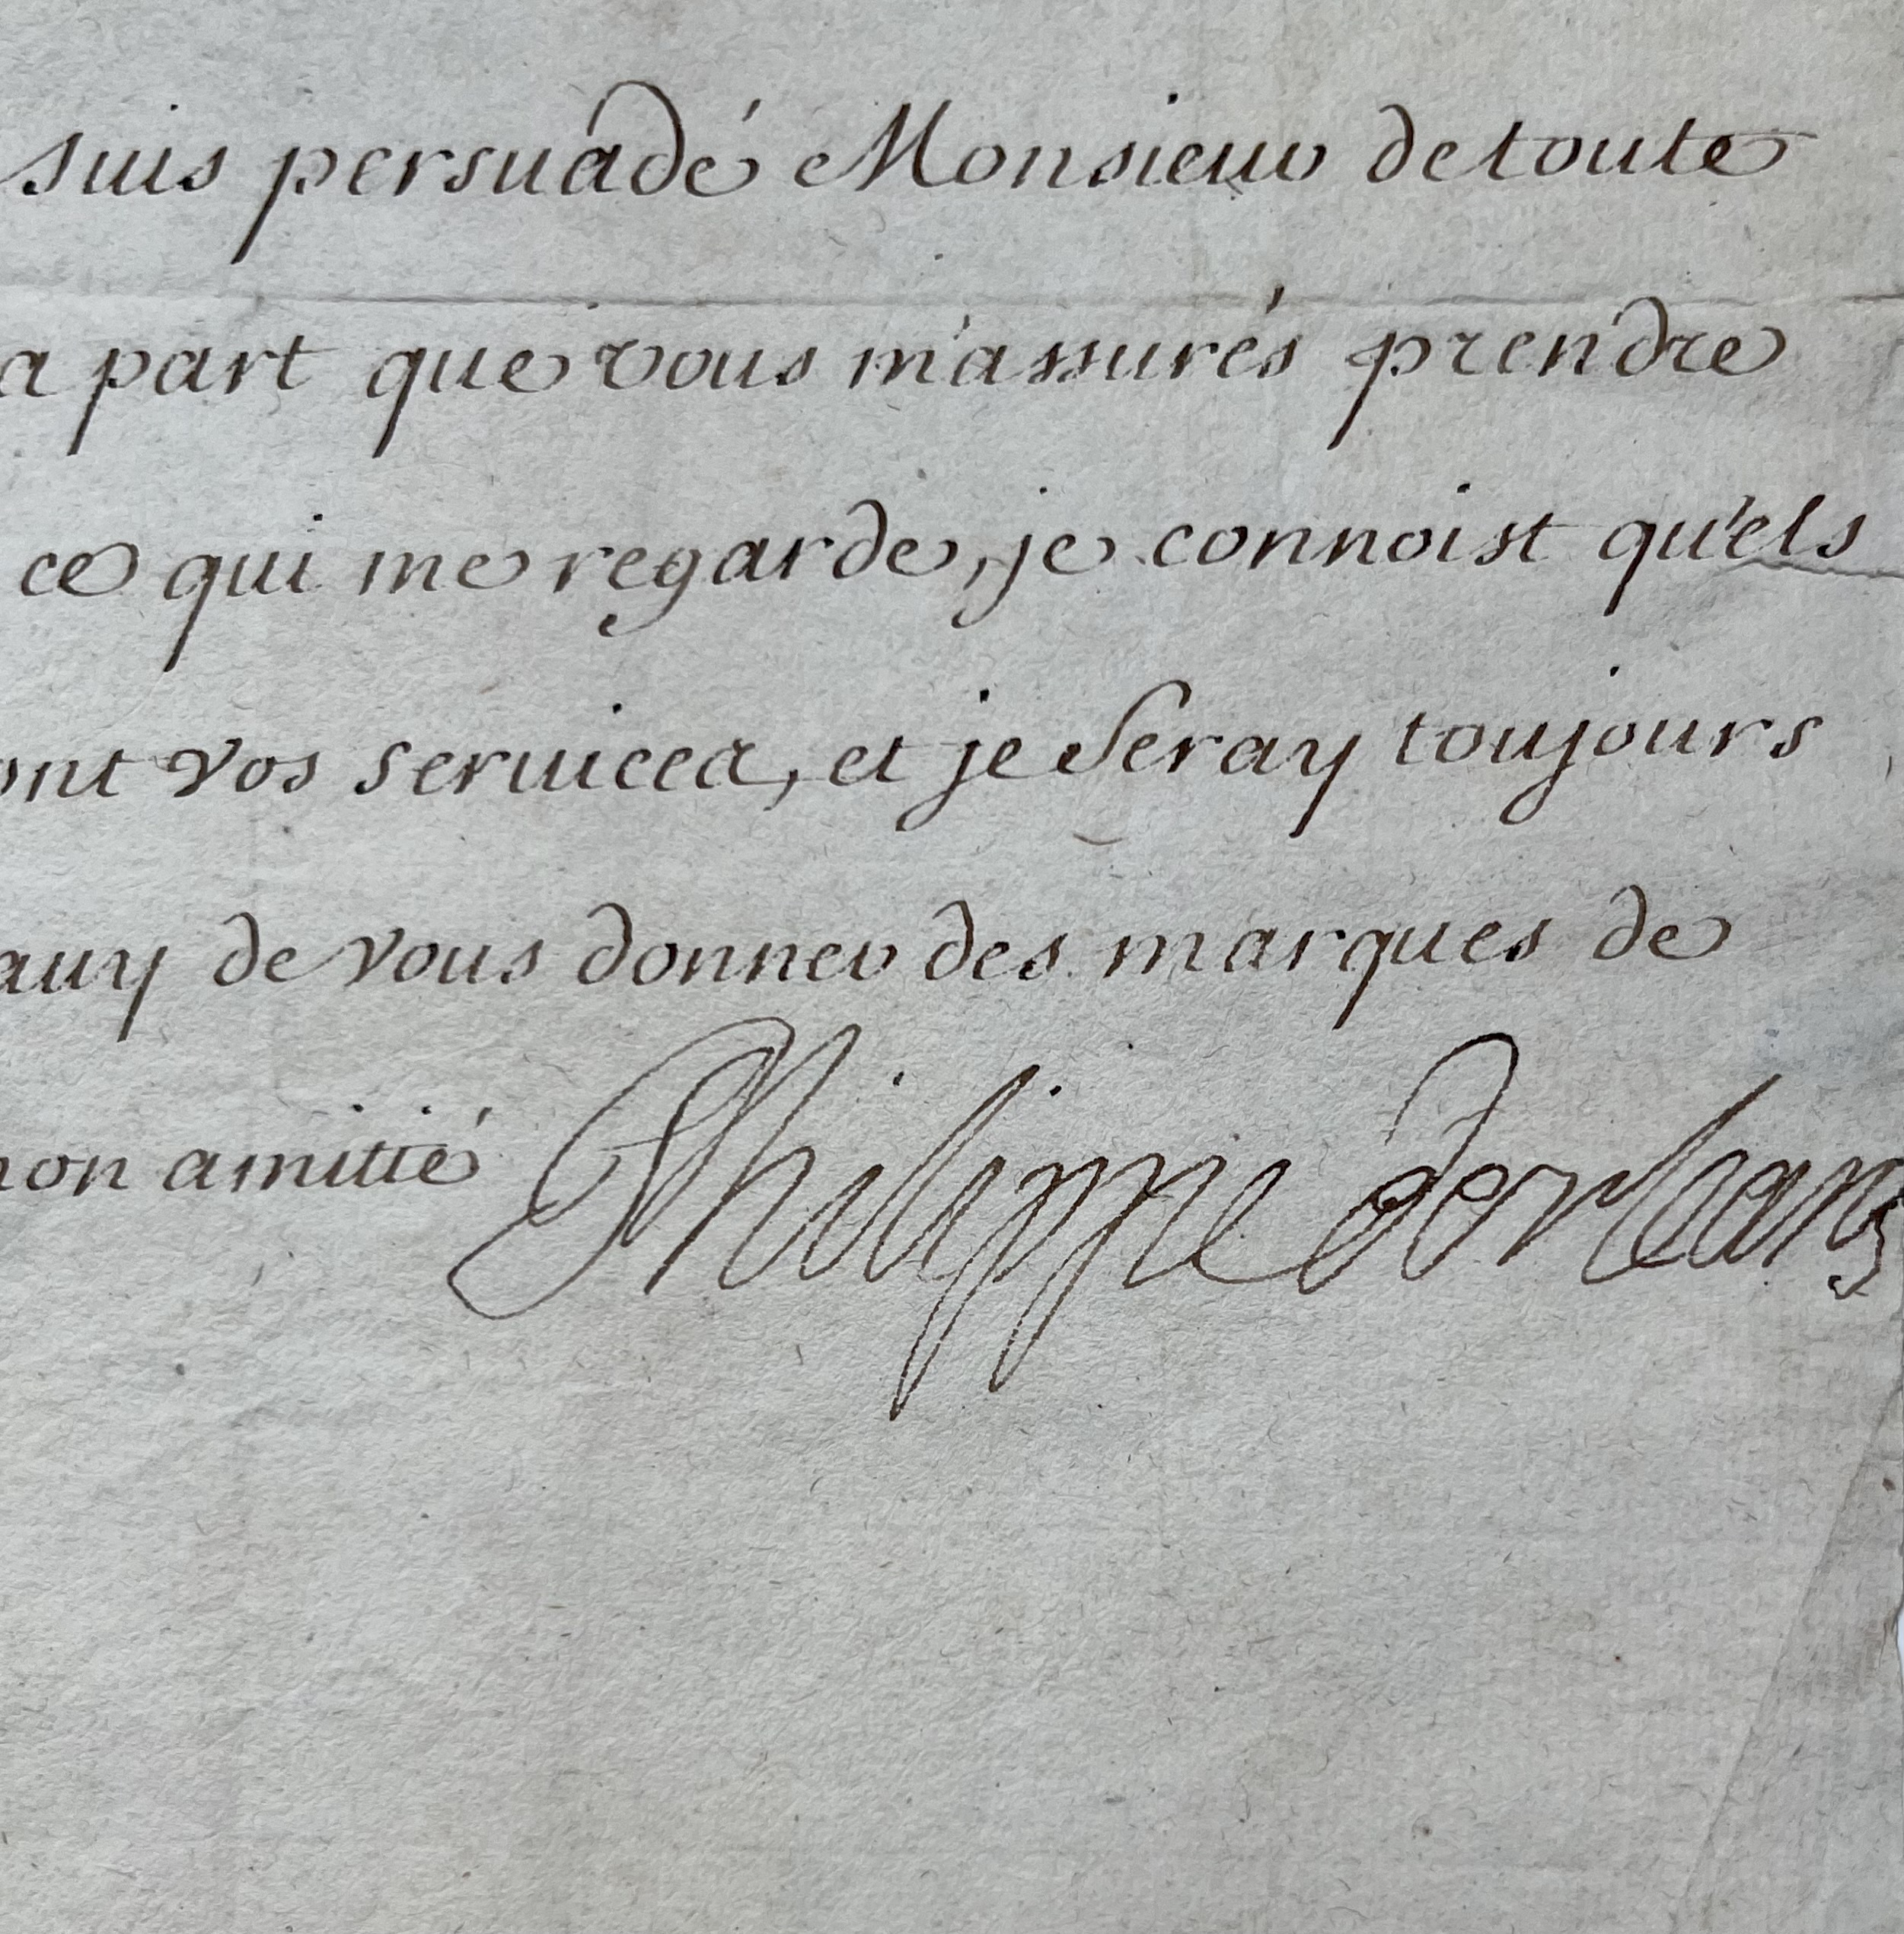 suis persuadé Monsieur de toute
a part que vous m'assurés prendre
ce qui me regarde, je connoist qu'els
ont vos seruices, et je seray toujours
auy de vous donner des marques de
non amitié Philippe dorleans